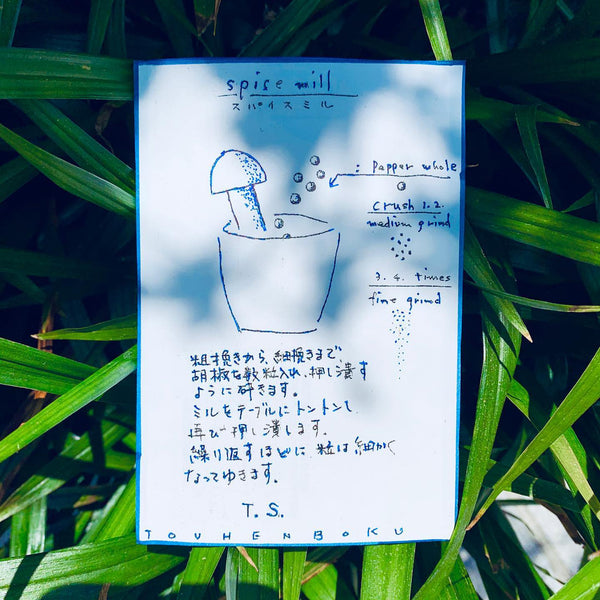 spise mill
スパイスミル
: Papper whole
crush 1.2.
medium grind
3. 4. times
fine grind
粗挽きから、細挽きまで、
胡椒を数粒入れ、押し潰す
ように砕きます。
ミルをテーブルにトントンし
再び押し潰します。
繰り返すほどに粒は細かく
なってゆきます。
T.S.
TOUHENBOKU